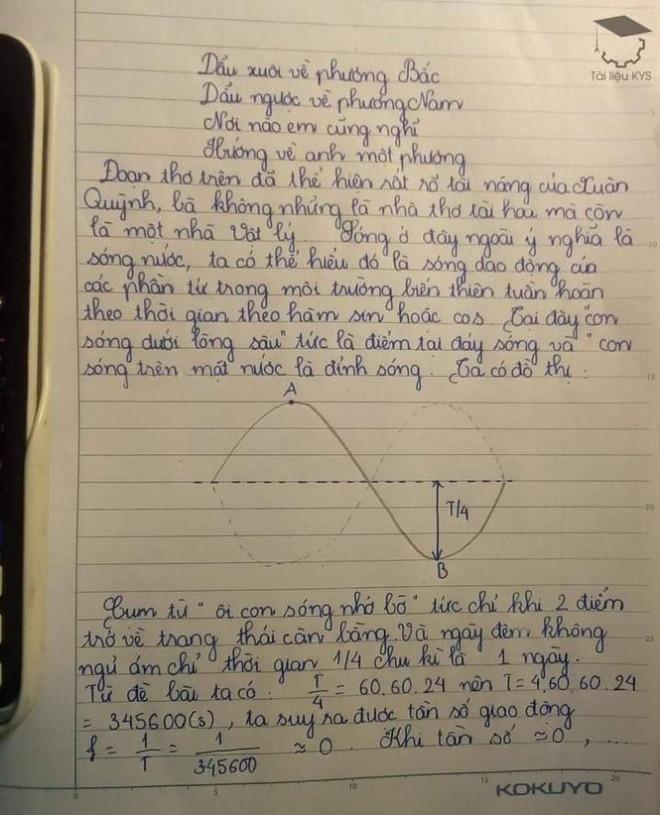 Tài liệu KYS
Dẫu xuôi về phương Bắc
Dẫu ngược về phương Nam
Nơi nào em cũng nghĩ
Hướng về anh một phương
Đoạn thơ trên đã thể hiện rất rõ tài năng của Xuân
Quỳnh, bà không những là nhà thơ tài hoa mà còn
là một nhà Vật lý. Sóng ở đây ngoài ý nghĩa là
sóng nước, ta có thể hiểu đó là sóng dao động của
các phần tử trong môi trường biến thiên tuần hoàn
theo thời gian theo hàm sin hoặc cos. Tại đây "con
sóng dưới lòng sâu" tức là điểm tại đáy sóng và "con
sóng trên mặt nước là đỉnh sóng. Ta có đồ thị:
A
T/4
B
Cụm từ "ôi con sóng nhớ bờ" tức chỉ khi 2 điểm
trở về trạng thái cân bằng. Và ngày đêm không
ngủ ám chỉ thời gian 1/4 chu kì là 1 ngày.
Từ đề bài ta có: T/4 = 60.60.24 nên T = 4.60.60.24
= 345600(s), ta suy ra được tần số giao động
f = 1/T = 1/345600 ≈ 0. Khi tần số ≈ 0, ...
KOKUYO
10
15
20
25
0
5
10
15
20